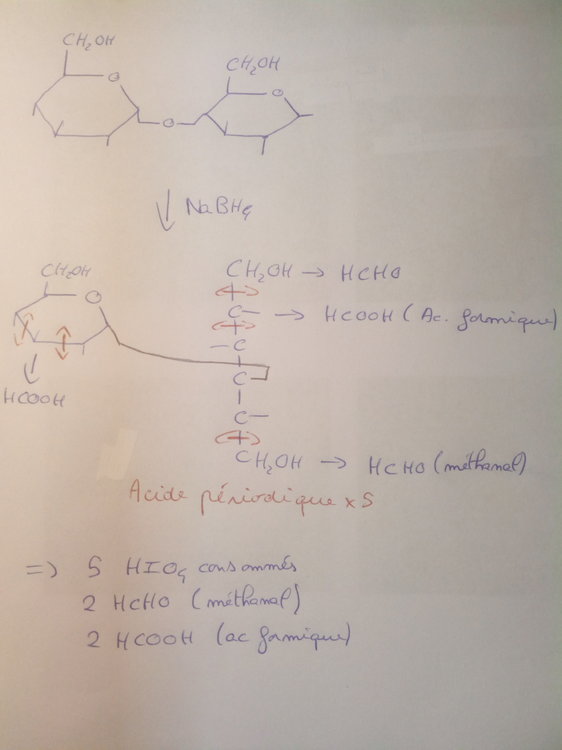 CH2OH
CH2OH
O
O
O
NaBH4
CH2OH
O
CH2OH → HCHO
C → HCOOH (Ac. formique)
C
C
C
CH2OH → HCHO (méthanal)
HCOOH
Acide périodique x 5
=> 5 HIO4 consommés
2 HCHO (méthanal)
2 HCOOH (ac formique)